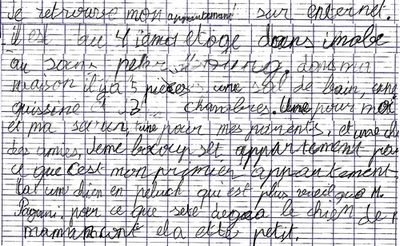 Je retrouve mon appartement sur internet.
il est au 4 iem etage dans imobe
au sein peter dans ma
maison il y a 5 pieces une sal de bain, une
quissine, 3 chambres. Une pour moi
et ma sœur, une pour mes parents, et une
des amies, Jeme bocoup set appartement par
ce que c'est mon premier appartement
un chien en peluch qui est plus vieil que M.
Pagani. par ce que sete le chien de
maman cont ela ette petit.